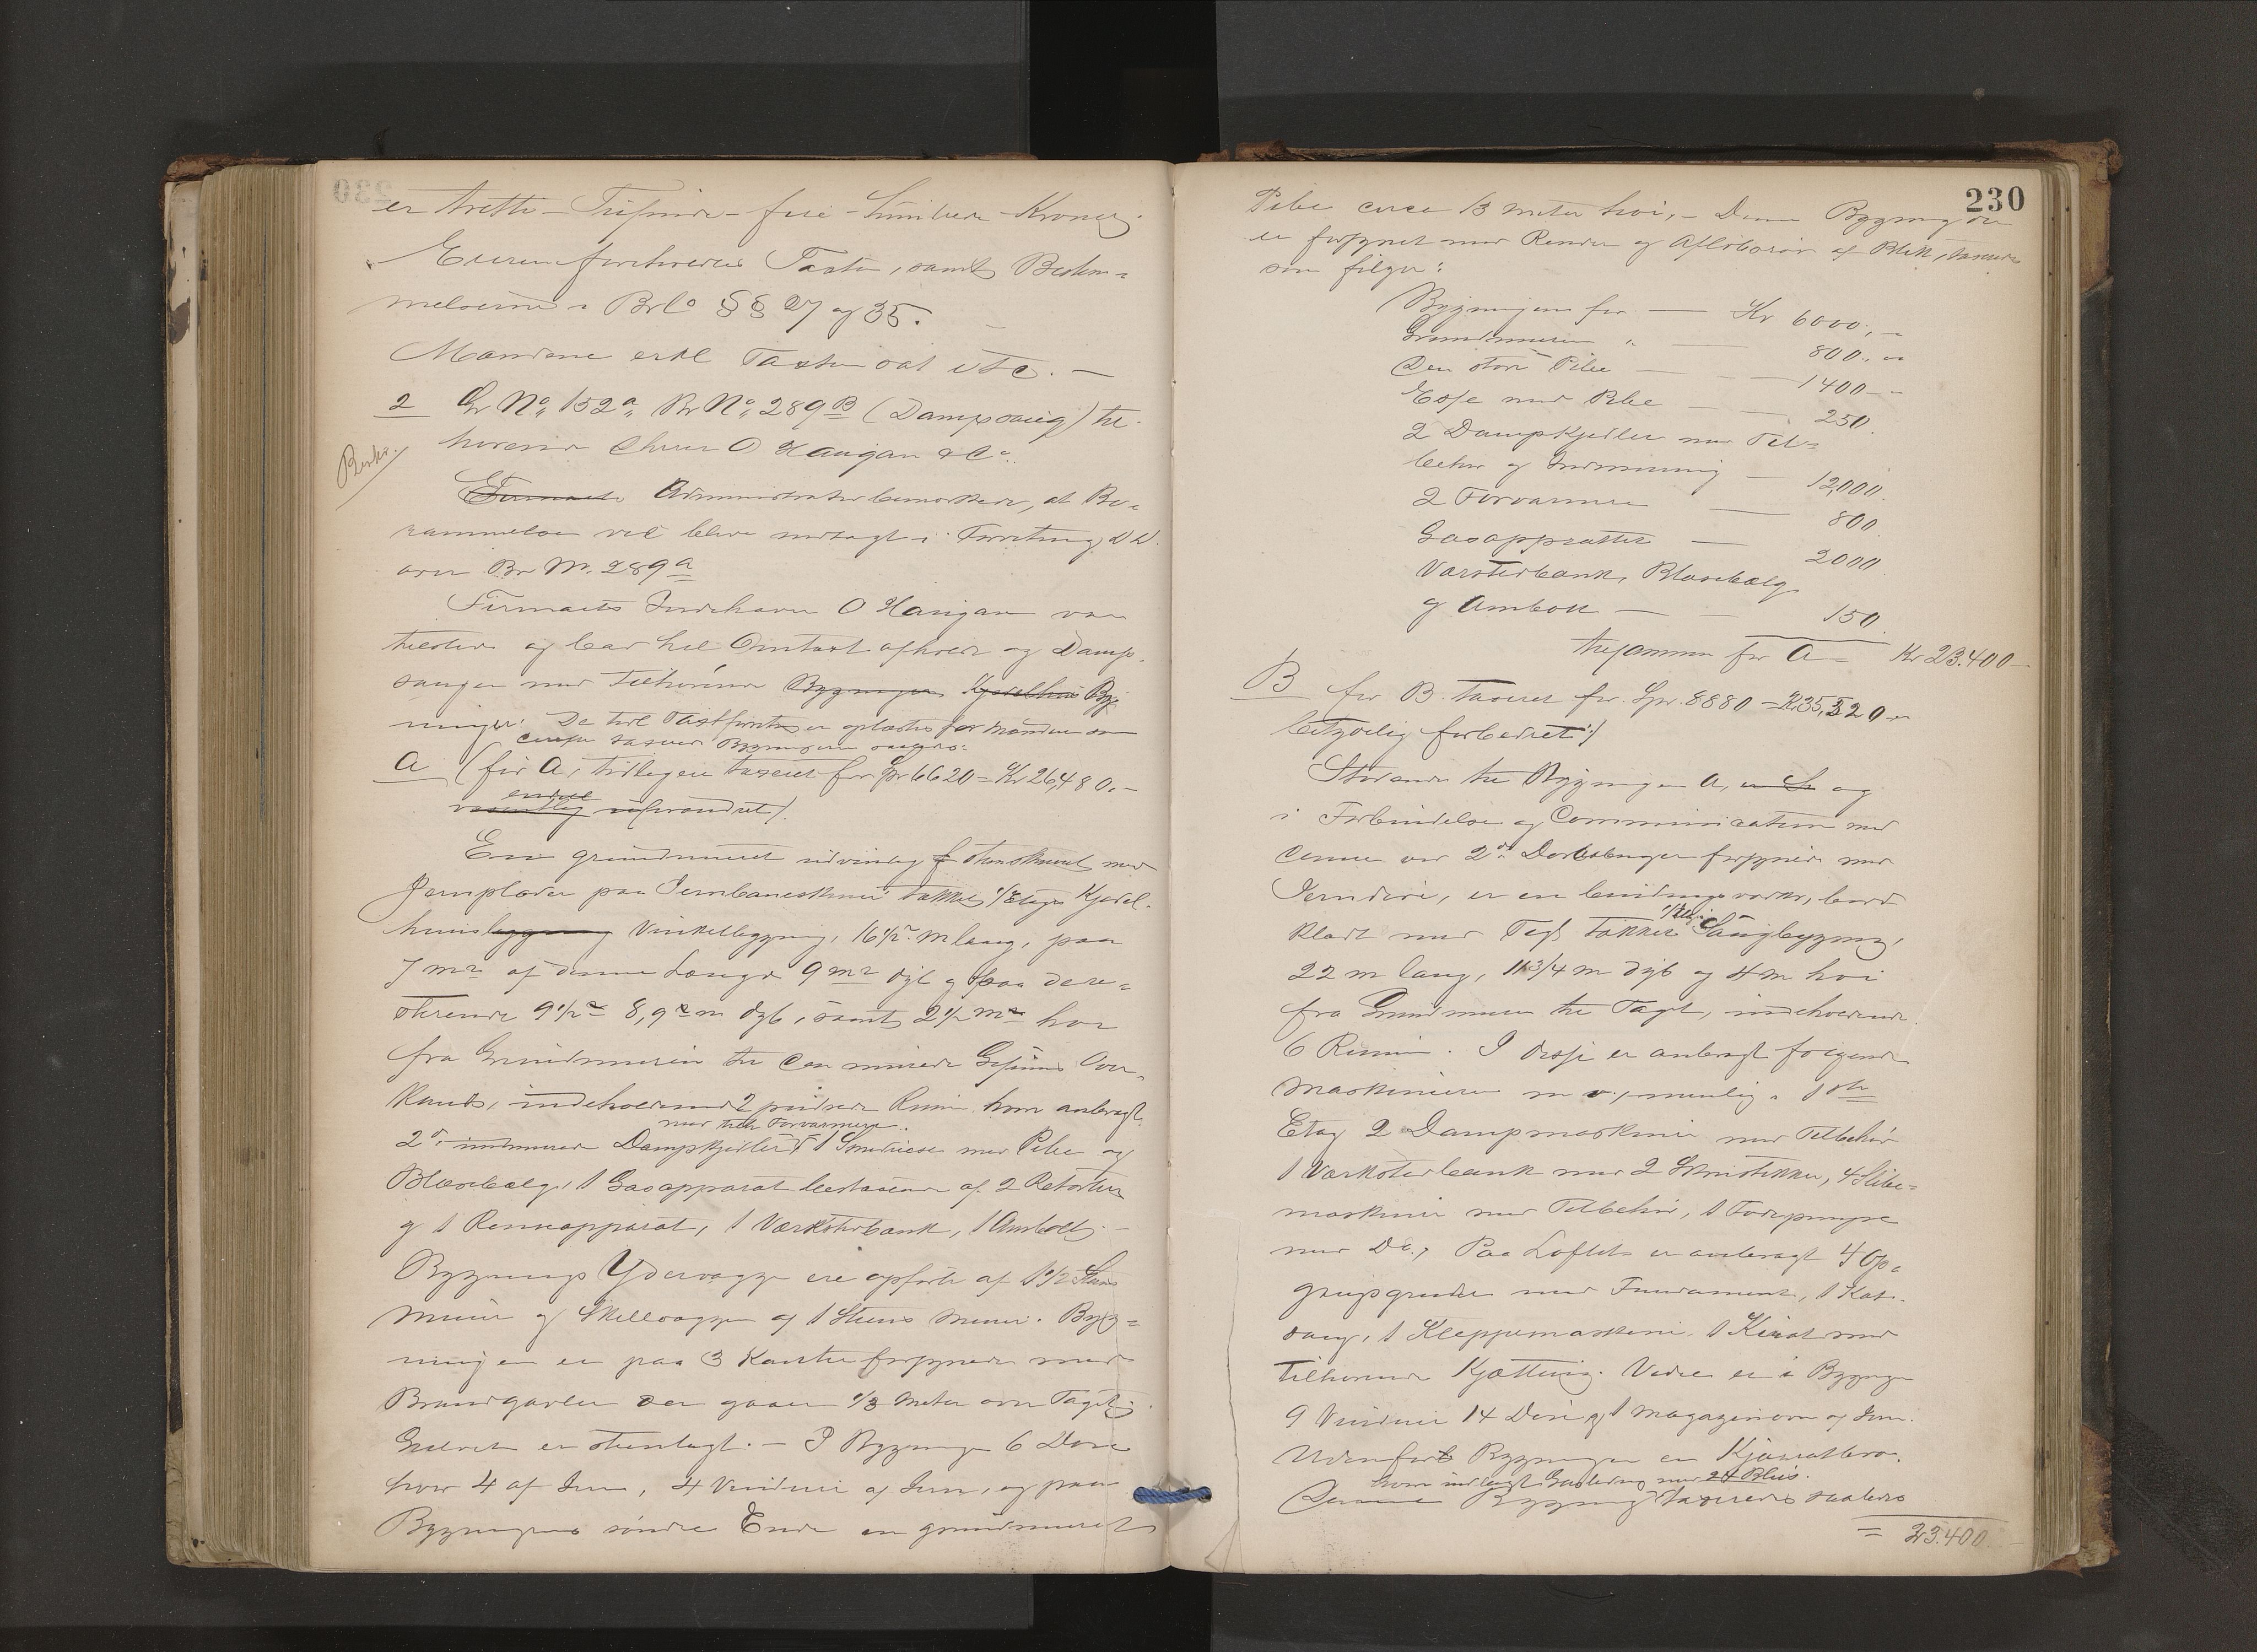 er tretti-Tusinde-fire-Hundrede-Kroner.
Eieren forehvdes Taxten, samt Bestem-
melserne i Brl. §§ 27 og 35.
Mændene erkl Taxten oat etc. —
2 Gr No. 152a, Br No. 289B (Dampsaug) til-
hørende Chrs O Haugan & Co.
Beskr.
Firmaets Administrator bemærkede, at Be-
rammelse vil blive medtagt i Forretning D.D.
over Br No. 289a
Firmaets Indehaver O Haugan var
tilstede og bar hel Omtaxt afholdt og Damp-
saugen med Tilhørende Bygningen Kjedelhus Byg-
ninger. De til Taxtforretn er oplæste for Mændene som
Bygningerne saaledes:
A (før A, tidligere taxeret for Spr 6620 = Kr 26,480.-
endel
væsentlig uforandret).
En grundmuret udvendig stenskuret med
Jernplader paa Jernbaneskinner takket 1 Etages Kjedel-
huusbygning Vinkelbygning, 16 1/2 m lang, paa
7 m af denne Længde 9 m dyb og paa de re-
sterende 9 1/2 8,9 m dyb, samt 2 1/2 m høi
fra Grundmuren til den murede Gesims Over-
kant, indeholdende 2 pudsede Rum hvor anbragt
med tre Forvarmere.
2de indmurede Dampkjedler, 1 Smedieesse med Pibe og
Blæsebælg, 1 Gasapparat bestaaende af 2 Retorter
og 1 Renseapparat, 1 Værkstedbænk, 1 Ambolt. —
Bygnings Ydervægge ere opførte af 1 1/2 Stens
Muur og Skillevægge af 1 Steens Muur. Byg-
ningen er paa 3 Kanter forsynede med
Brandgavler der gaaer 1/3 Meter over Taget.
Gulvet er stenlagt. — I Bygningen 6 Døre
hvor 4 af Jern, 4 Vinduer af Jern, og paa
Bygningens søndre Ende en grundmuret
230
Pibe circa 13 Meter høi, — Denne Bygning der
er forsynet med Render og Afløbsrør af Blik, taxeres
som følger:
Bygningen for — Kr 6000,-
Grundmuren " — 800,-
Den store Pibe — 1400 -
Esse med Pibe — 250.
2 Dampkjedler med Til-
behør og Indmuring — 12,000.
2 Forvarmere — 800
Gasapparattet — 2000
Værkstedbænk, Blæsebælg
og Ambolt — 150.
tilsammen for A = Kr 23.400 -
B før B taxeret for Spr. 8880 = Kr 35,520
betydelig forbedret:/
Støende til Bygningen A, og
i Forbindelse og Communication med
denne ved 2de Dørabninger forsynede med
Jerndøre, er en bindingsværks, bord-
1 Etages
klædt med Tagst takket Saugbygning,
22 m lang, 11 3/4 m dyb og 4 m høi
fra Grundmuren til Taget, indeholdende
6 Rum. I disse er anbragt følgende
Maskinerier m v, nemlig i 1ste
Etage 2 Dampmaskiner med Tilbehør
1 Værkstedbænk med 2 Skruestikker, 4 Slibe-
maskiner med Tilbehør, 1 Fødepumpe
med Do., Paa Loftet er anbragt 4 Op-
gangsgrinder med Fundament, 1 Kap-
saug, 1 Kleppemaskine 1 Kjærat med
Tilhørende Kjætting. Videre er i Bygningen
9 Vinduer 14 Døre og 1 Magazinovn af Jern.
Udenfor Bygningen en Kjæratbro.
hvor indlagt Gasledning med 24 Blus.
Denne Bygning taxeredes saaledes
= 23.400